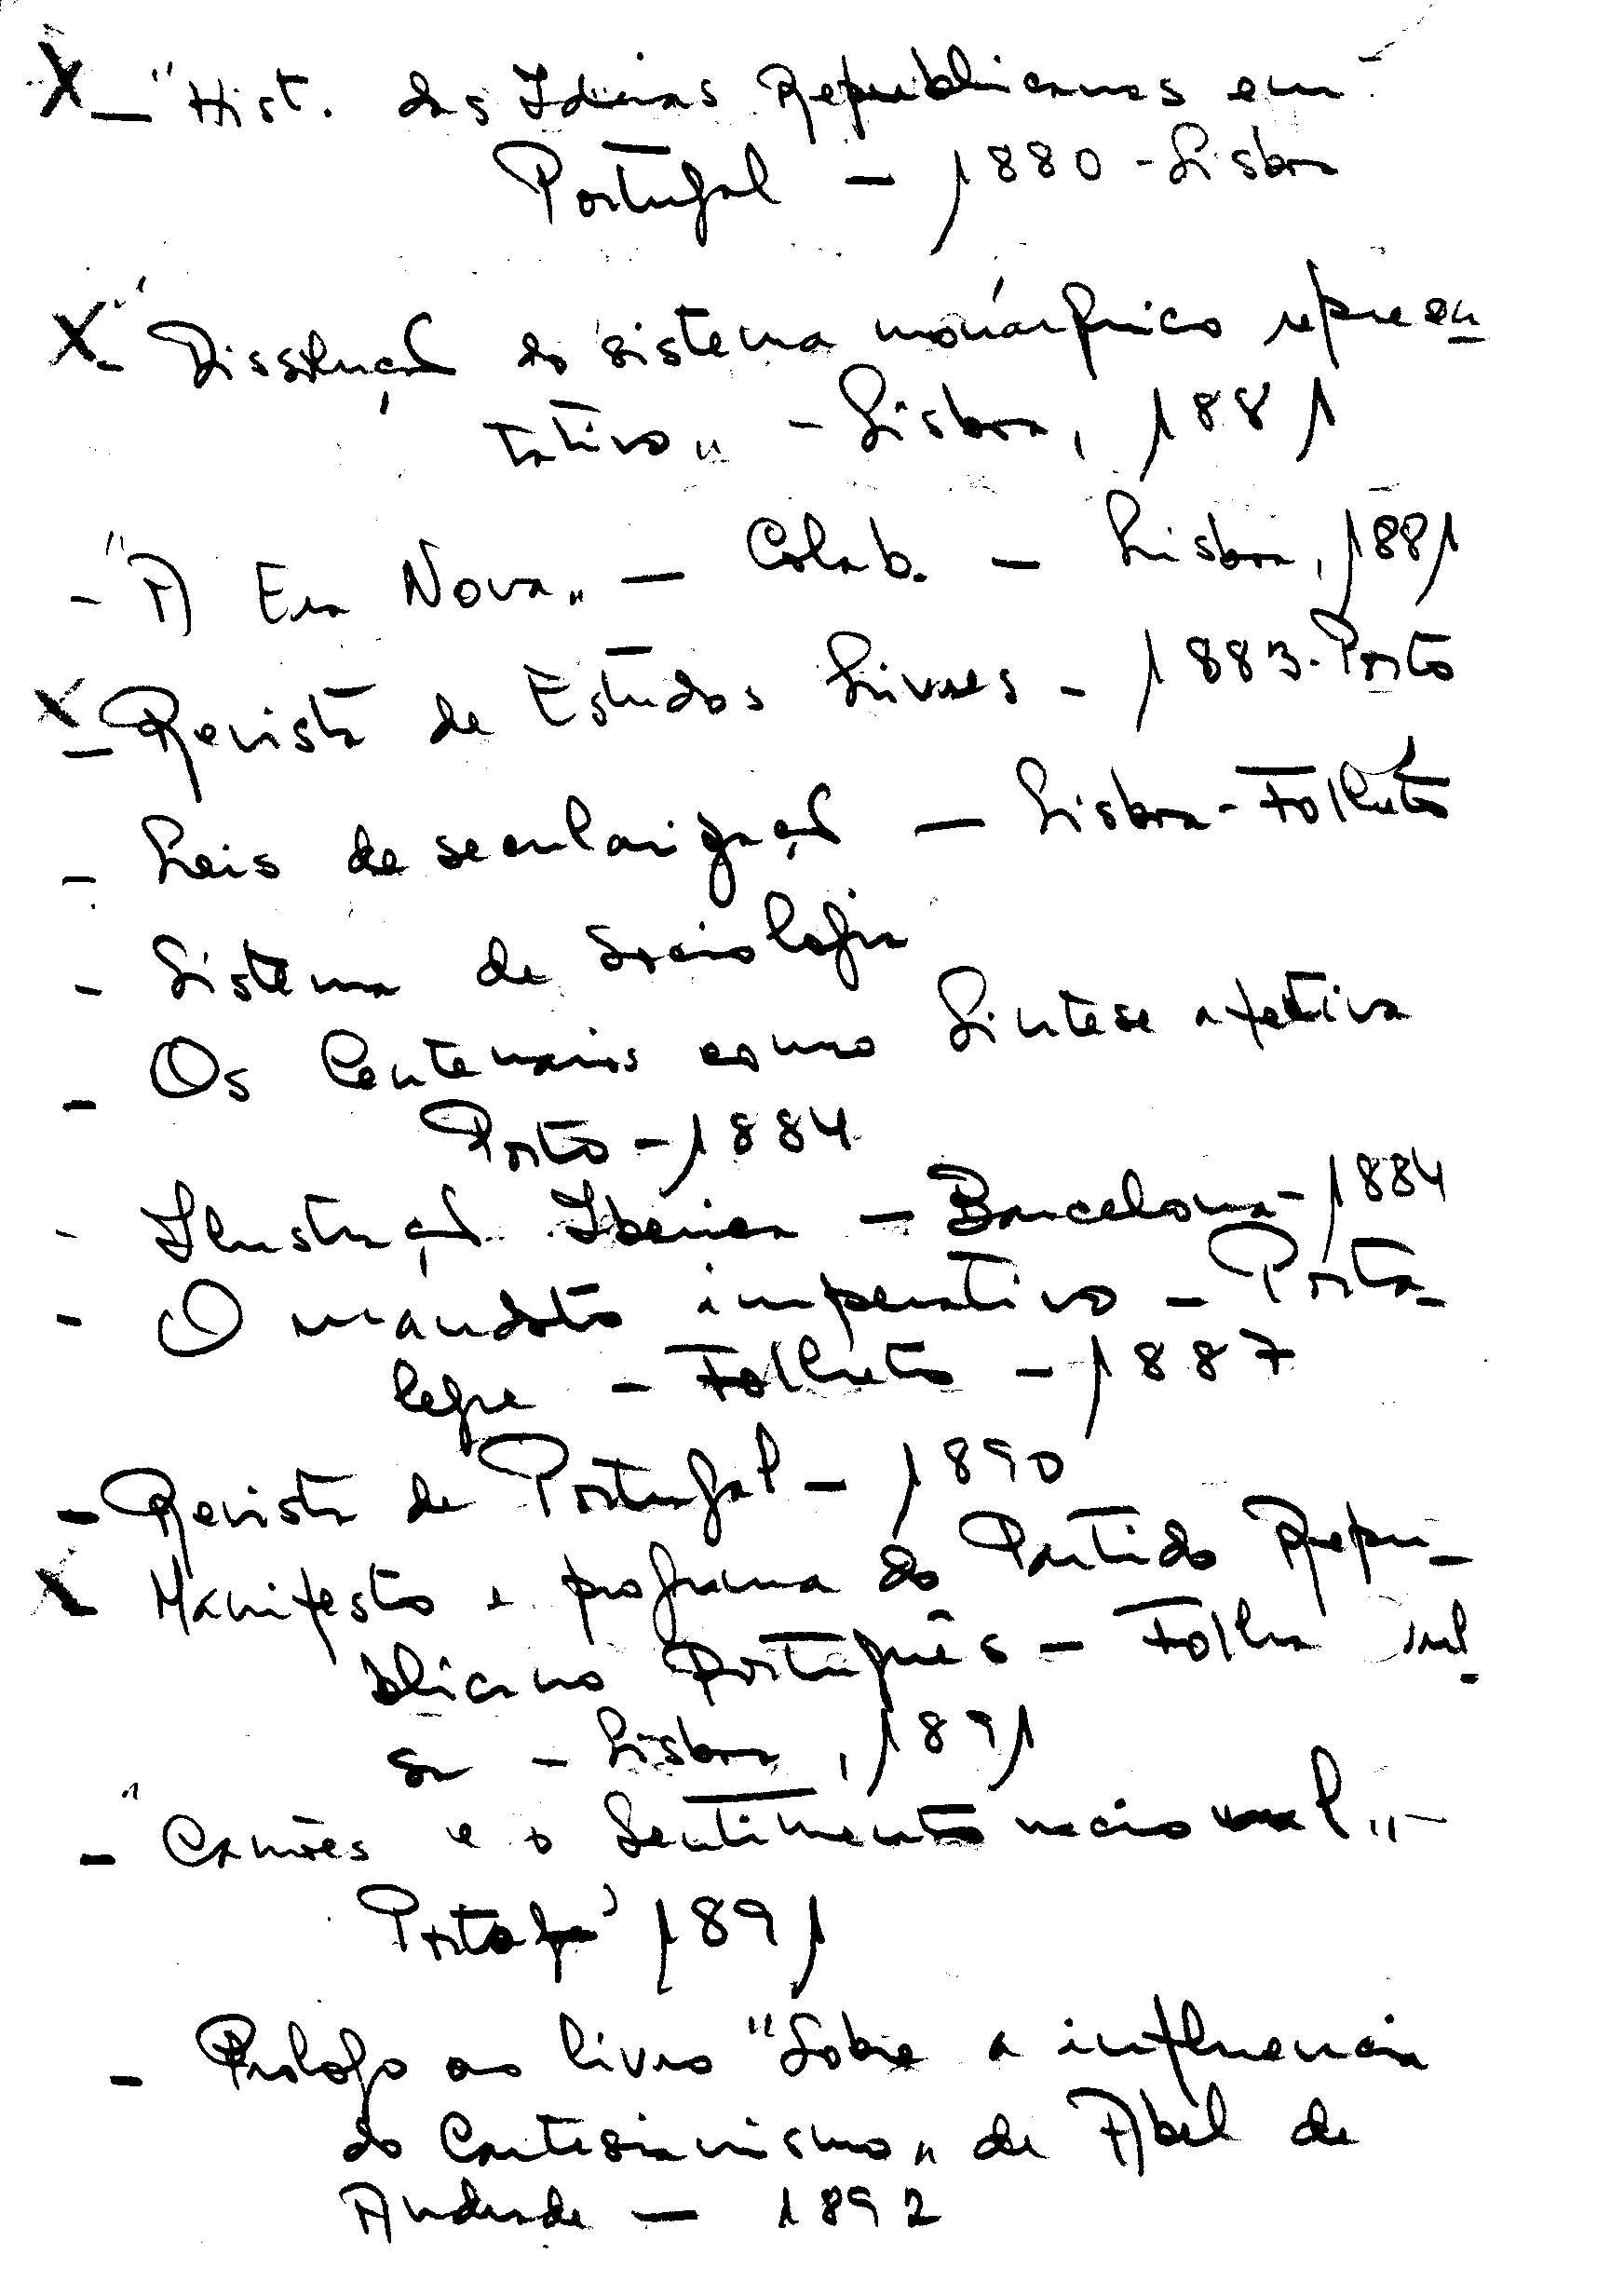 X — "Hist. das Ideias Republicanas em
Portugal — 1880 - Lisboa
X - "Dissolução do sistema monárquico represen-
tativo" - Lisboa, 1881
- "A Era Nova" — Colab. — Lisboa, 1881
X - Revista de Estudos Livres - 1883 - Porto
- Leis de secularização — Lisboa - Folheto
- Sistema de Sociologia
- Os Centenários como Síntese afectiva
Porto - 1884
- Ilustração Ibérica — Barcelona - 1884
- O mandato imperativo - Porta-
legre - Folheto - 1887
- Revista de Portugal - 1890
X - Manifesto e programa do Partido Repu-
blicano Português - Folha
- Lisboa, 1891
- "Camões e o Sentimento nacional" -
1891
- Prólogo ao livro "Sobre a influencia
do Cartesianismo" de Abel de
Andrade — 1892